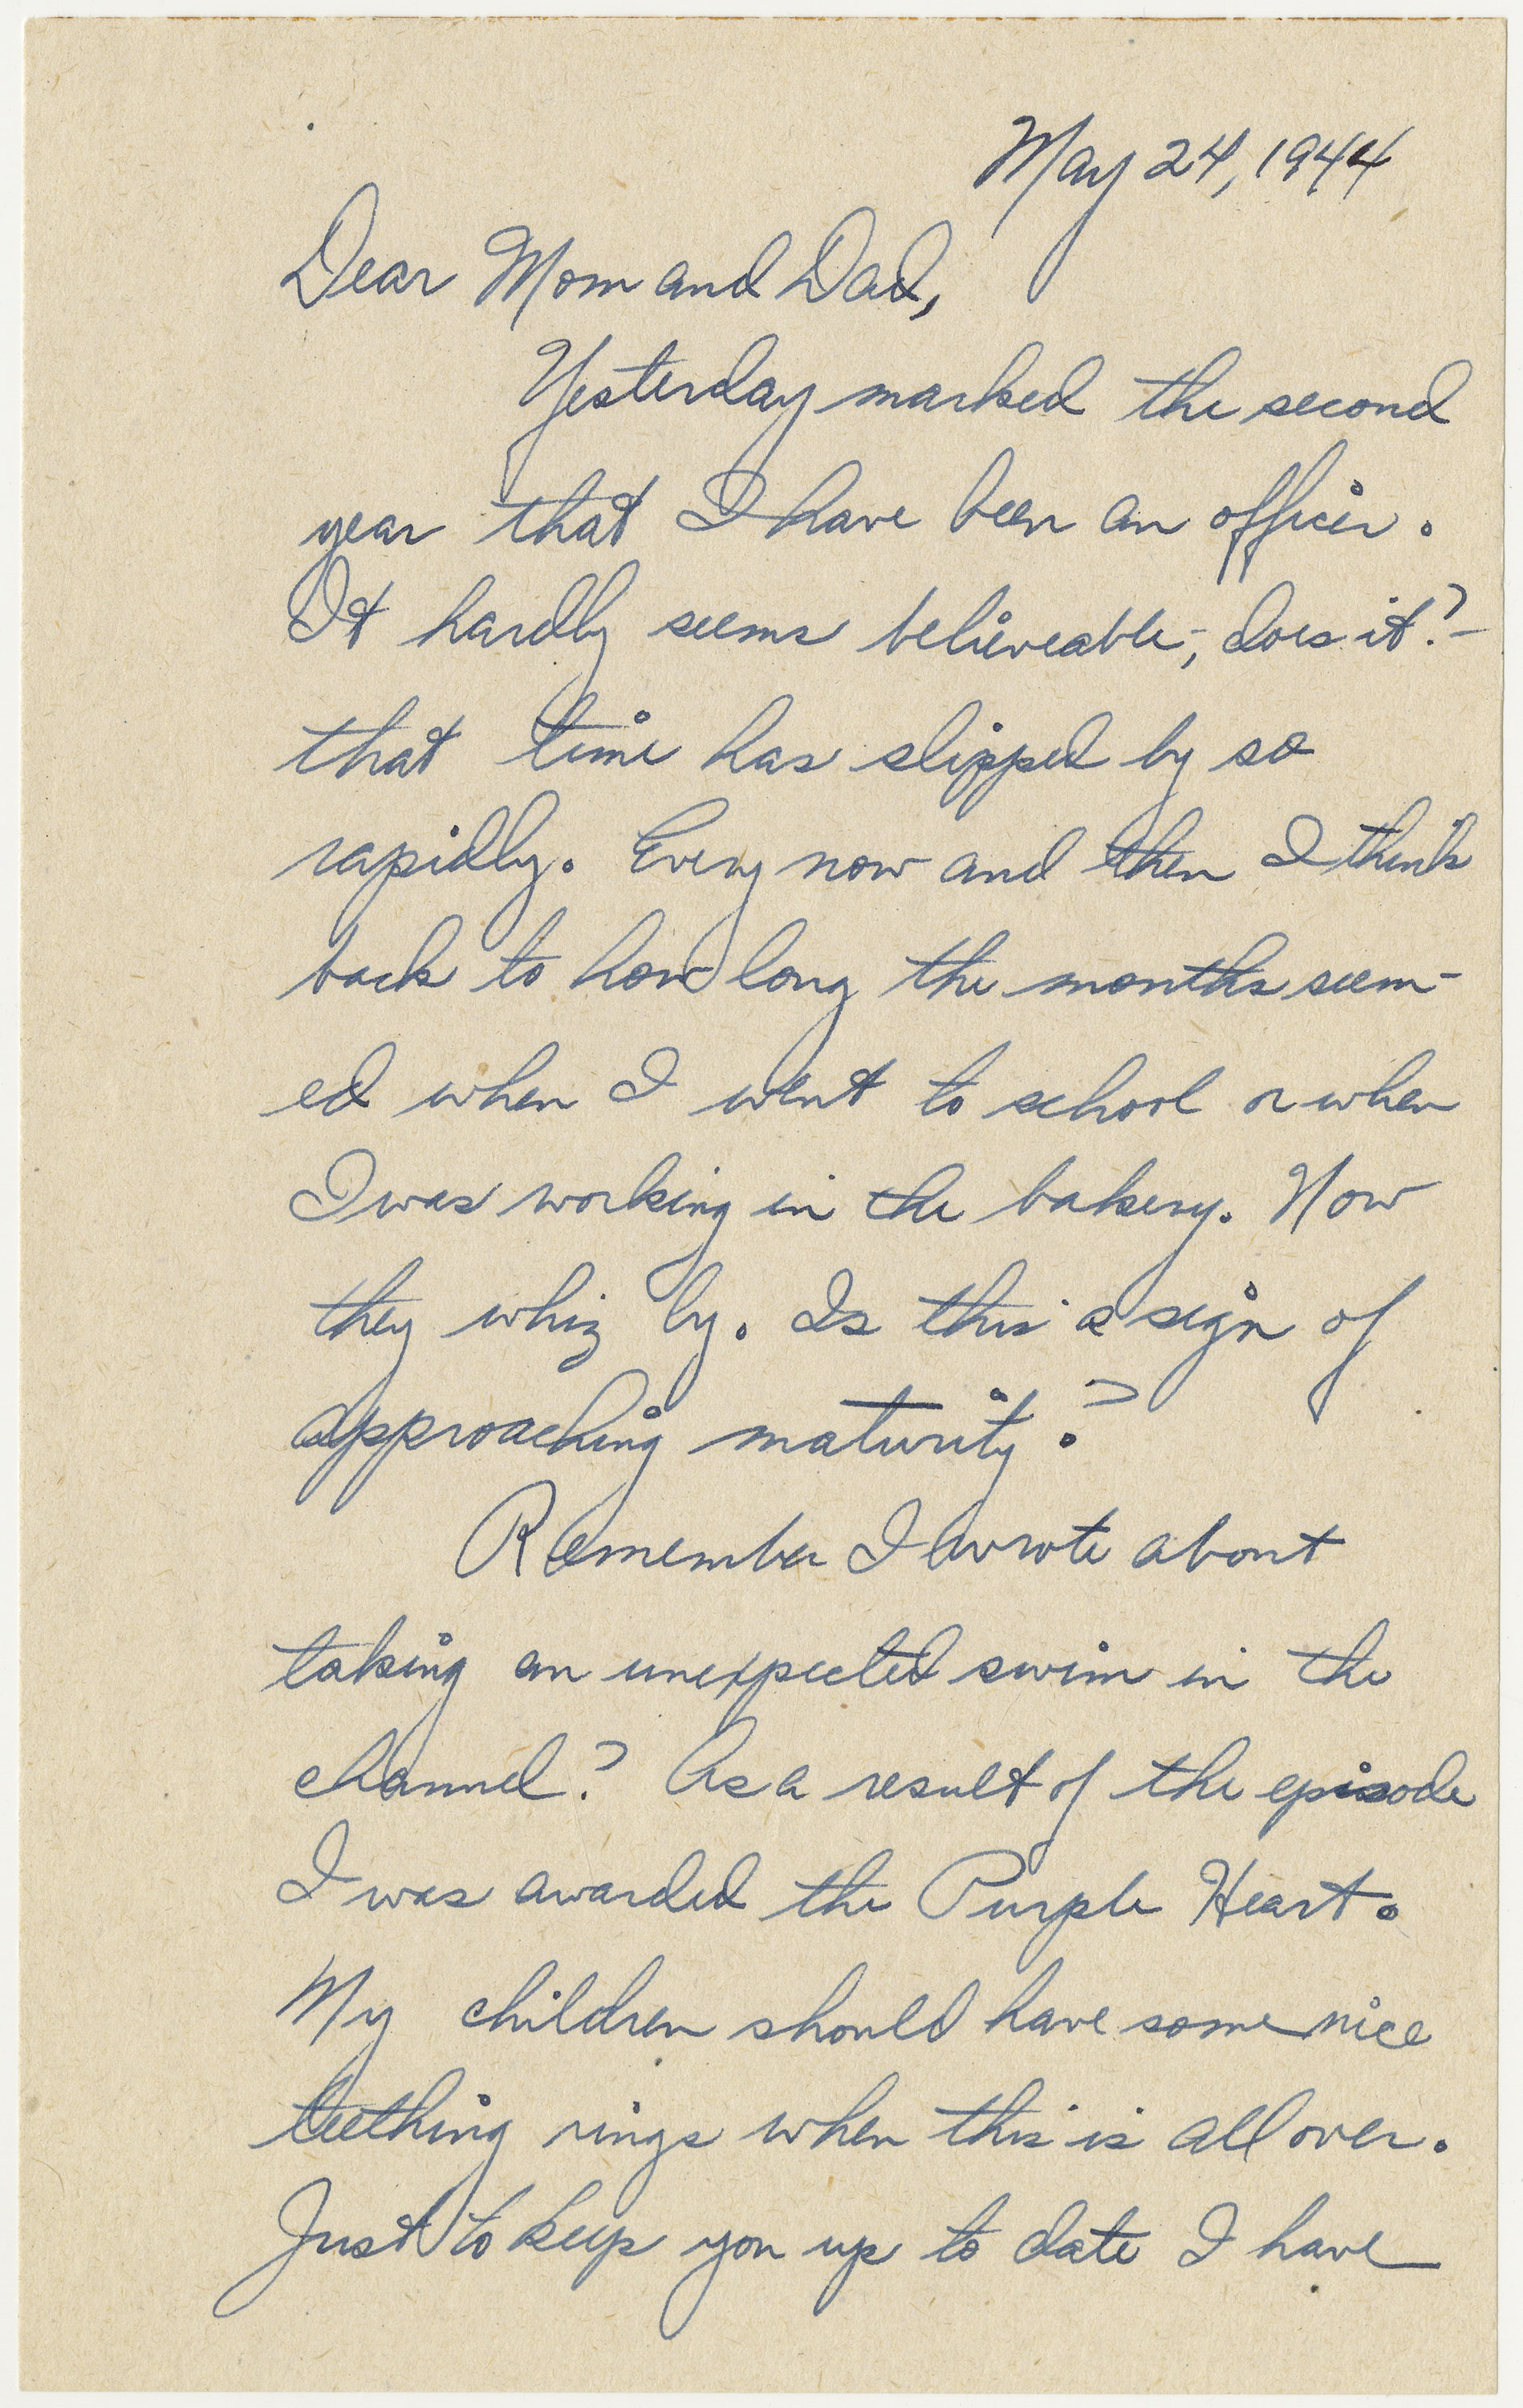 May 24, 1944
Dear Mom and Dad,
Yesterday marked the second
year that I have been an officer.
It hardly seems believeable-, does it?-
that time has slipped by so
rapidly. Every now and then I think
back to how long the months seem-
ed when I went to school or when
I was working in the bakery. Now
they whiz by. Is this a sign of
approaching maturity?
Remember I wrote about
taking an unexpected swim in the
channel? As a result of the episode
I was awarded the Purple Heart.
My children should have some nice
teething rings when this is all over.
Just to keep you up to date I have